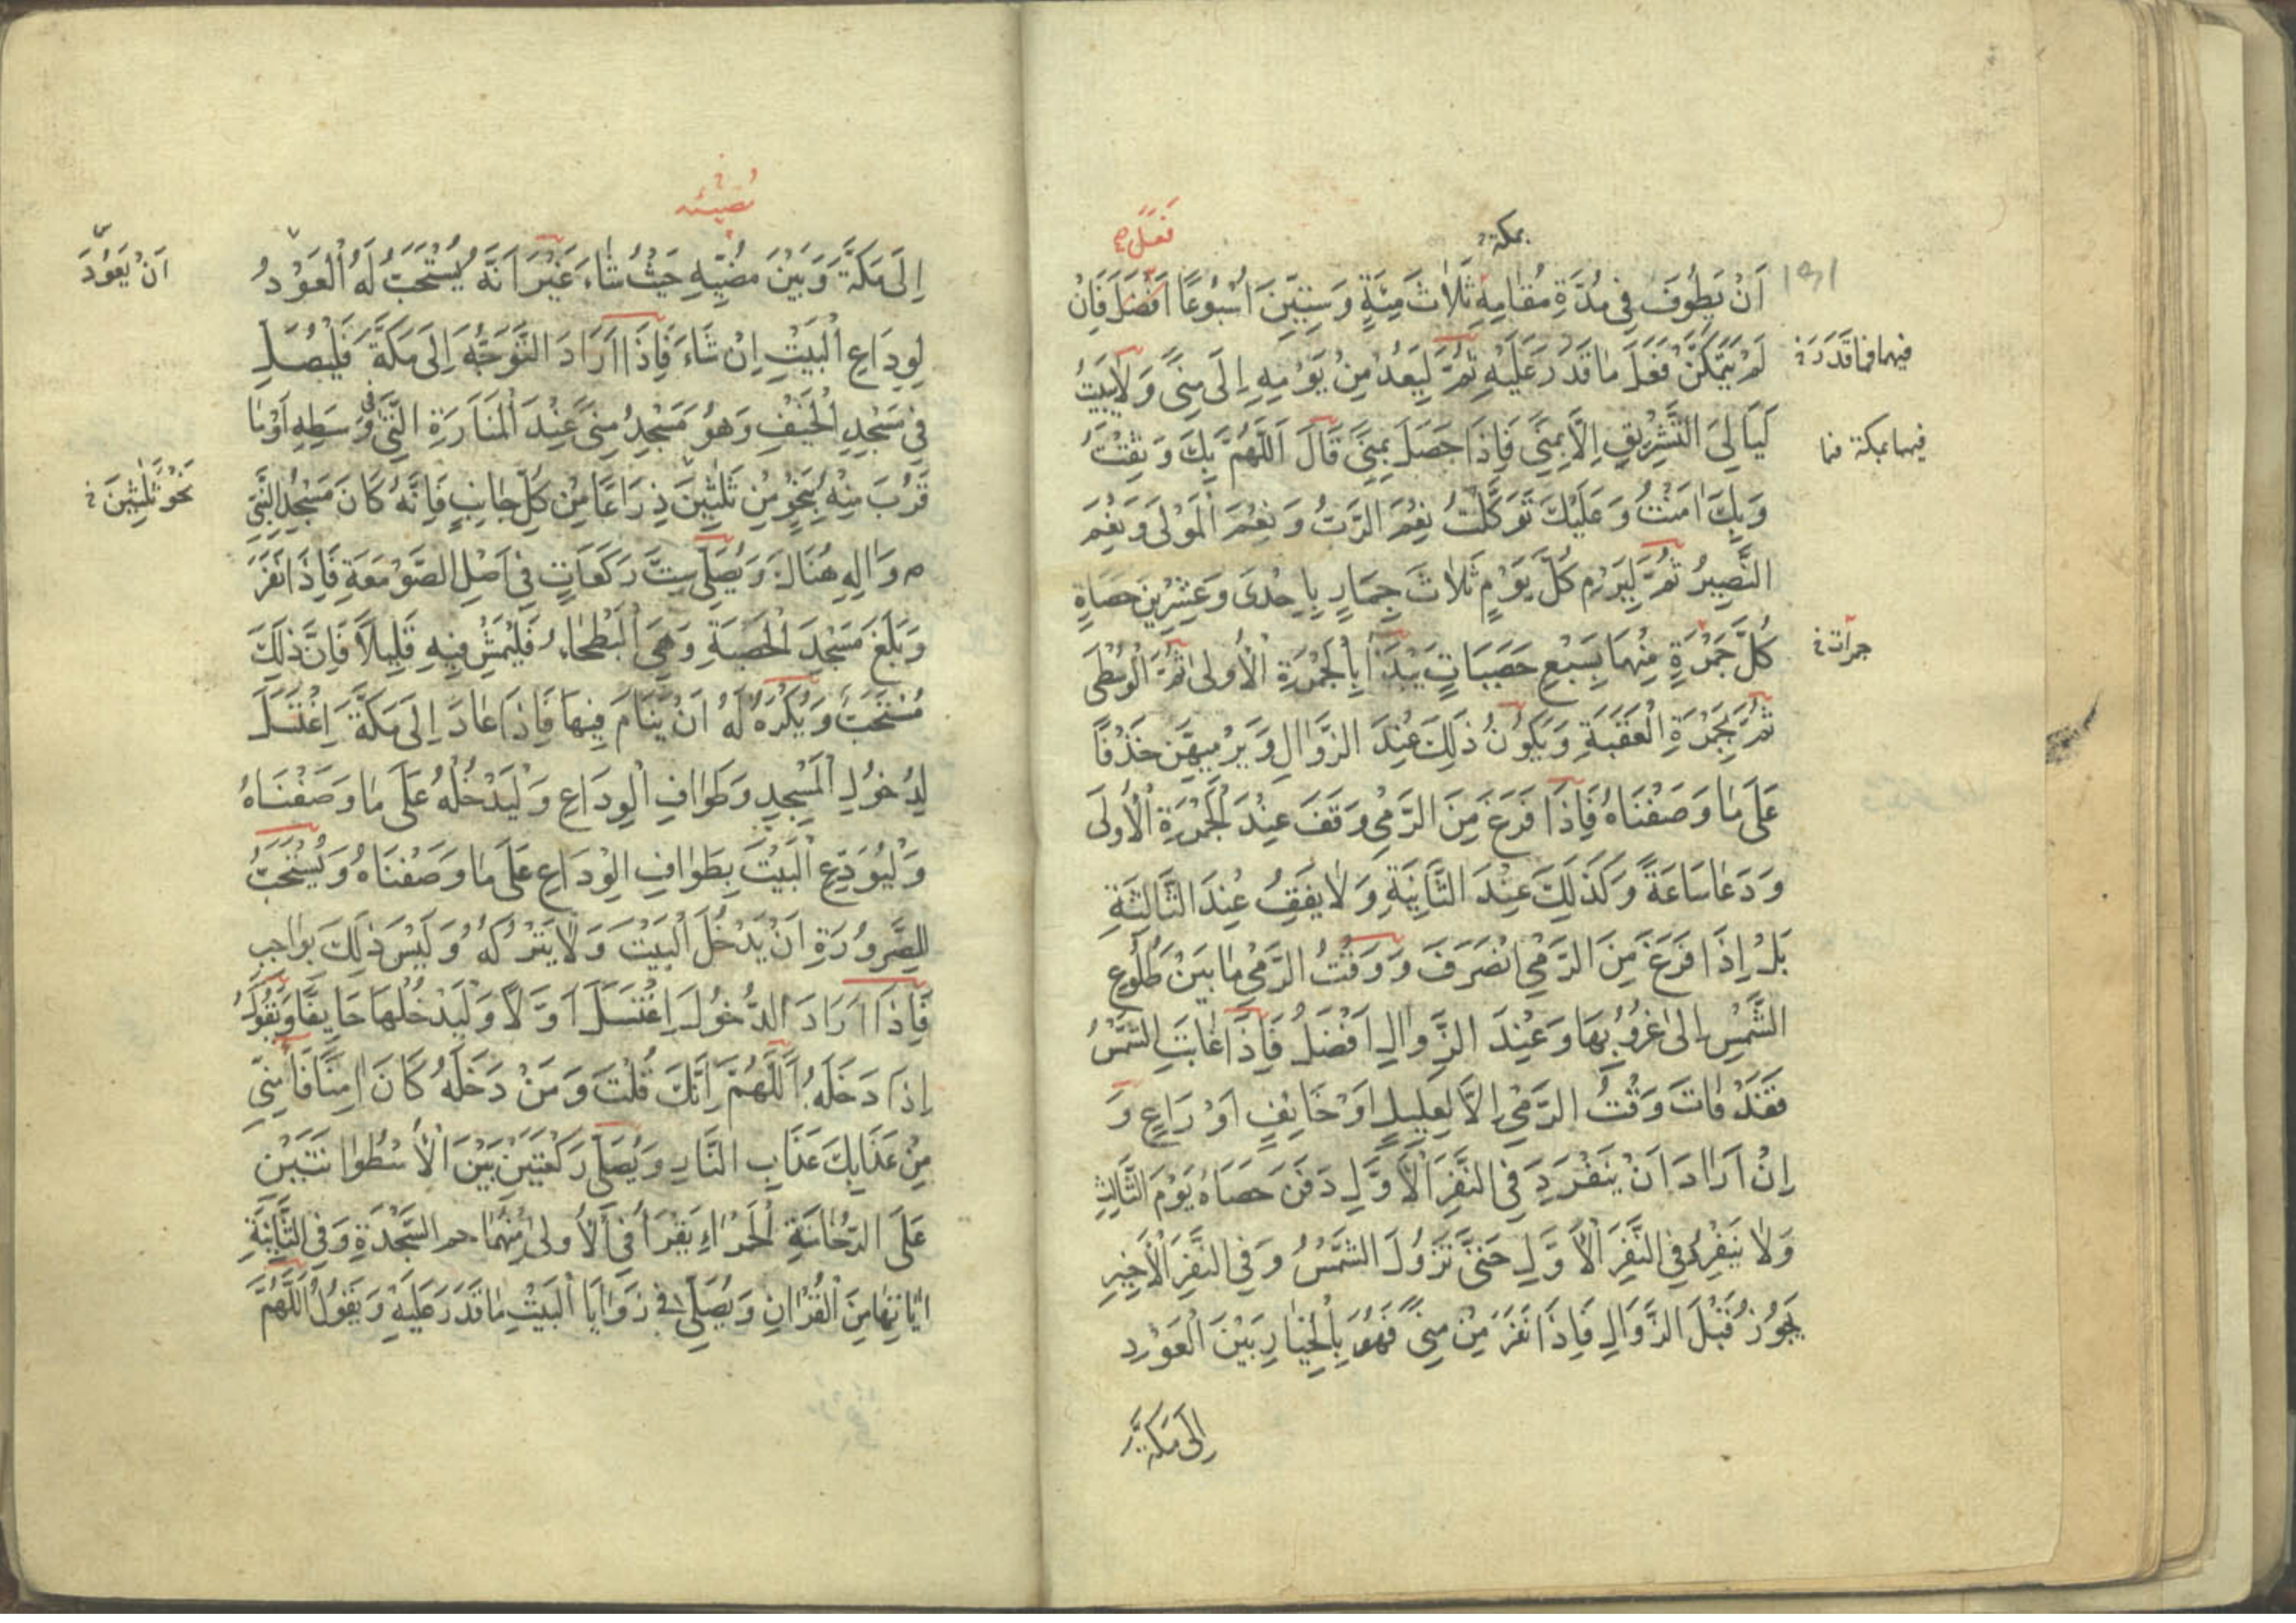 بمكة
فَعَلَ
اَنْ يَطُوفَ فِي مُدَّةِ مُقَامِهِ ثَلَاثَ مِئَةٍ وَسِتِّينَ اُسْبُوعًا اَفْضَلَ فَاِنْ
لَمْ يَتَمَكَّنْ فَعَلَ مَا قَدَرَ عَلَيْهِ ثُمَّ لِيَعُدْ مِنْ يَوْمِهِ اِلَى مِنًى وَلَا يَبِيتُ
فيهما فما قَدَرَ
لَيَالِيَ التَّشْرِيقِ اِلَّا بِمِنًى فَاِذَا حَصَلَ بِمِنًى قَالَ اَللّٰهُمَّ بِكَ وَثِقْتُ
فيهما بمكة فما
وَبِكَ اٰمَنْتُ وَعَلَيْكَ تَوَكَّلْتُ نِعْمَ الرَّبُّ وَنِعْمَ الْمَوْلَى وَنِعْمَ
النَّصِيرُ ثُمَّ لِيَرْمِ كُلَّ يَوْمٍ ثَلَاثَ جِمَارٍ بِاِحْدَى وَعِشْرِينَ حَصَاةٍ
كُلَّ جَمْرَةٍ مِنْهَا بِسَبْعِ حَصَيَاتٍ يَبْدَأُ بِالْجَمْرَةِ الْأُولَى ثُمَّ الْوُسْطَى
جمرات
ثُمَّ بِجَمْرَةِ الْعَقَبَةِ وَيَكُونُ ذٰلِكَ عِنْدَ الزَّوَالِ وَيَرْمِيهِنَّ خَذْفًا
عَلَى مَا وَصَفْنَاهُ فَاِذَا فَرَغَ مِنَ الرَّمْيِ وَقَفَ عِنْدَ الْجَمْرَةِ الْأُولَى
وَدَعَا سَاعَةً وَكَذٰلِكَ عِنْدَ الثَّانِيَةِ وَلَا يَقِفُ عِنْدَ الثَّالِثَةِ
بَلْ اِذَا فَرَغَ مِنَ الرَّمْيِ انْصَرَفَ وَوَقْتُ الرَّمْيِ مَا بَيْنَ طُلُوعِ
الشَّمْسِ اِلَى غُرُوبِهَا وَعِنْدَ الزَّوَالِ اَفْضَلُ فَاِذَا غَابَتِ الشَّمْسُ
فَقَدْ فَاتَ وَقْتُ الرَّمْيِ اِلَّا لِعَلِيلٍ اَوْ خَايِفٍ اَوْ رَاعٍ وَ
اِنْ اَرَادَ اَنْ يَنْفَرِدَ فِي النَّفْرِ الْأَوَّلِ دَفَنَ حَصَاهُ يَوْمَ الثَّالِثِ
وَلَا يَنْفِرُ فِي النَّفْرِ الْأَوَّلِ حَتَّى تَزُولَ الشَّمْسُ وَفِي النَّفْرِ الْأَخِيرِ
يَجُوزُ قَبْلَ الزَّوَالِ فَاِذَا نَفَرَ مِنْ مِنًى فَهُوَ بِالْخِيَارِ بَيْنَ الْعَوْدِ
اِلَى مَكَّةَ
اِلَى مَكَّةَ وَبَيْنَ مُضِيِّهِ حَيْثُ شَاءَ غَيْرَ اَنَّهُ يُسْتَحَبُّ لَهُ الْعَوْدُ
اَنْ يَعُودَ
لِوِدَاعِ الْبَيْتِ اِنْ شَاءَ فَاِذَا اَرَادَ التَّوَجُّهَ اِلَى مَكَّةَ فَلْيُصَلِّ
فِي مَسْجِدِ الْخَيْفِ وَهُوَ مَسْجِدُ مِنًى عِنْدَ الْمَنَارَةِ الَّتِي فِي وَسَطِهِ اَوْ مَا
قَرُبَ مِنْهُ بِنَحْوٍ مِنْ ثَلٰثِينَ ذِرَاعًا مِنْ كُلِّ جَانِبٍ فَاِنَّهُ كَانَ مَسْجِدُ النَّبِيِّ
نَحْوَ ثَلٰثِينَ
ص وَاٰلِهِ هُنَاكَ وَيُصَلِّي سِتَّ رَكَعَاتٍ فِي اَصْلِ الصَّوْمَعَةِ فَاِذَا نَفَرَ
وَبَلَغَ مَسْجِدَ الْحَصْبَةِ وَهِيَ الْبَطْحَاءُ فَلْيَمْشِ فِيهِ قَلِيلًا فَاِنَّ ذٰلِكَ
مُسْتَحَبٌّ وَيُكْرَهُ لَهُ اَنْ يَنَامَ فِيهَا فَاِذَا عَادَ اِلَى مَكَّةَ اِغْتَسَلَ
لِدُخُولِ الْمَسْجِدِ وَطَوَافِ الْوِدَاعِ وَلْيَدْخُلْهُ عَلَى مَا وَصَفْنَاهُ
وَلْيُوَدِّعِ الْبَيْتَ بِطَوَافِ الْوِدَاعِ عَلَى مَا وَصَفْنَاهُ وَيُسْتَحَبُّ
لِلصَّرُورَةِ اَنْ يَدْخُلَ الْبَيْتَ وَلَا يَتْرُكَهُ وَلَيْسَ ذٰلِكَ بِوَاجِبٍ
فَاِذَا اَرَادَ الدُّخُولَ اِغْتَسَلَ اَوَّلًا وَلْيَدْخُلْهَا حَافِيًا وَيَقُولُ
اِذَا دَخَلَهُ اَللّٰهُمَّ اِنَّكَ قُلْتَ وَمَنْ دَخَلَهُ كَانَ اٰمِنًا فَاٰمِنِّي
مِنْ عَذَابِكَ عَذَابِ النَّارِ وَيُصَلِّي رَكْعَتَيْنِ بَيْنَ الْأُسْطُوَانَتَيْنِ
عَلَى الرُّخَامَةِ الْحَمْرَاءِ يَقْرَأُ فِي الْأُولَى مِنْهُمَا حم السَّجْدَةِ وَفِي الثَّانِيَةِ
اٰيَاتِهَا مِنَ الْقُرْاٰنِ وَيُصَلِّي فِي زَوَايَا الْبَيْتِ مَا قَدَرَ عَلَيْهِ وَيَقُولُ اَللّٰهُمَّ